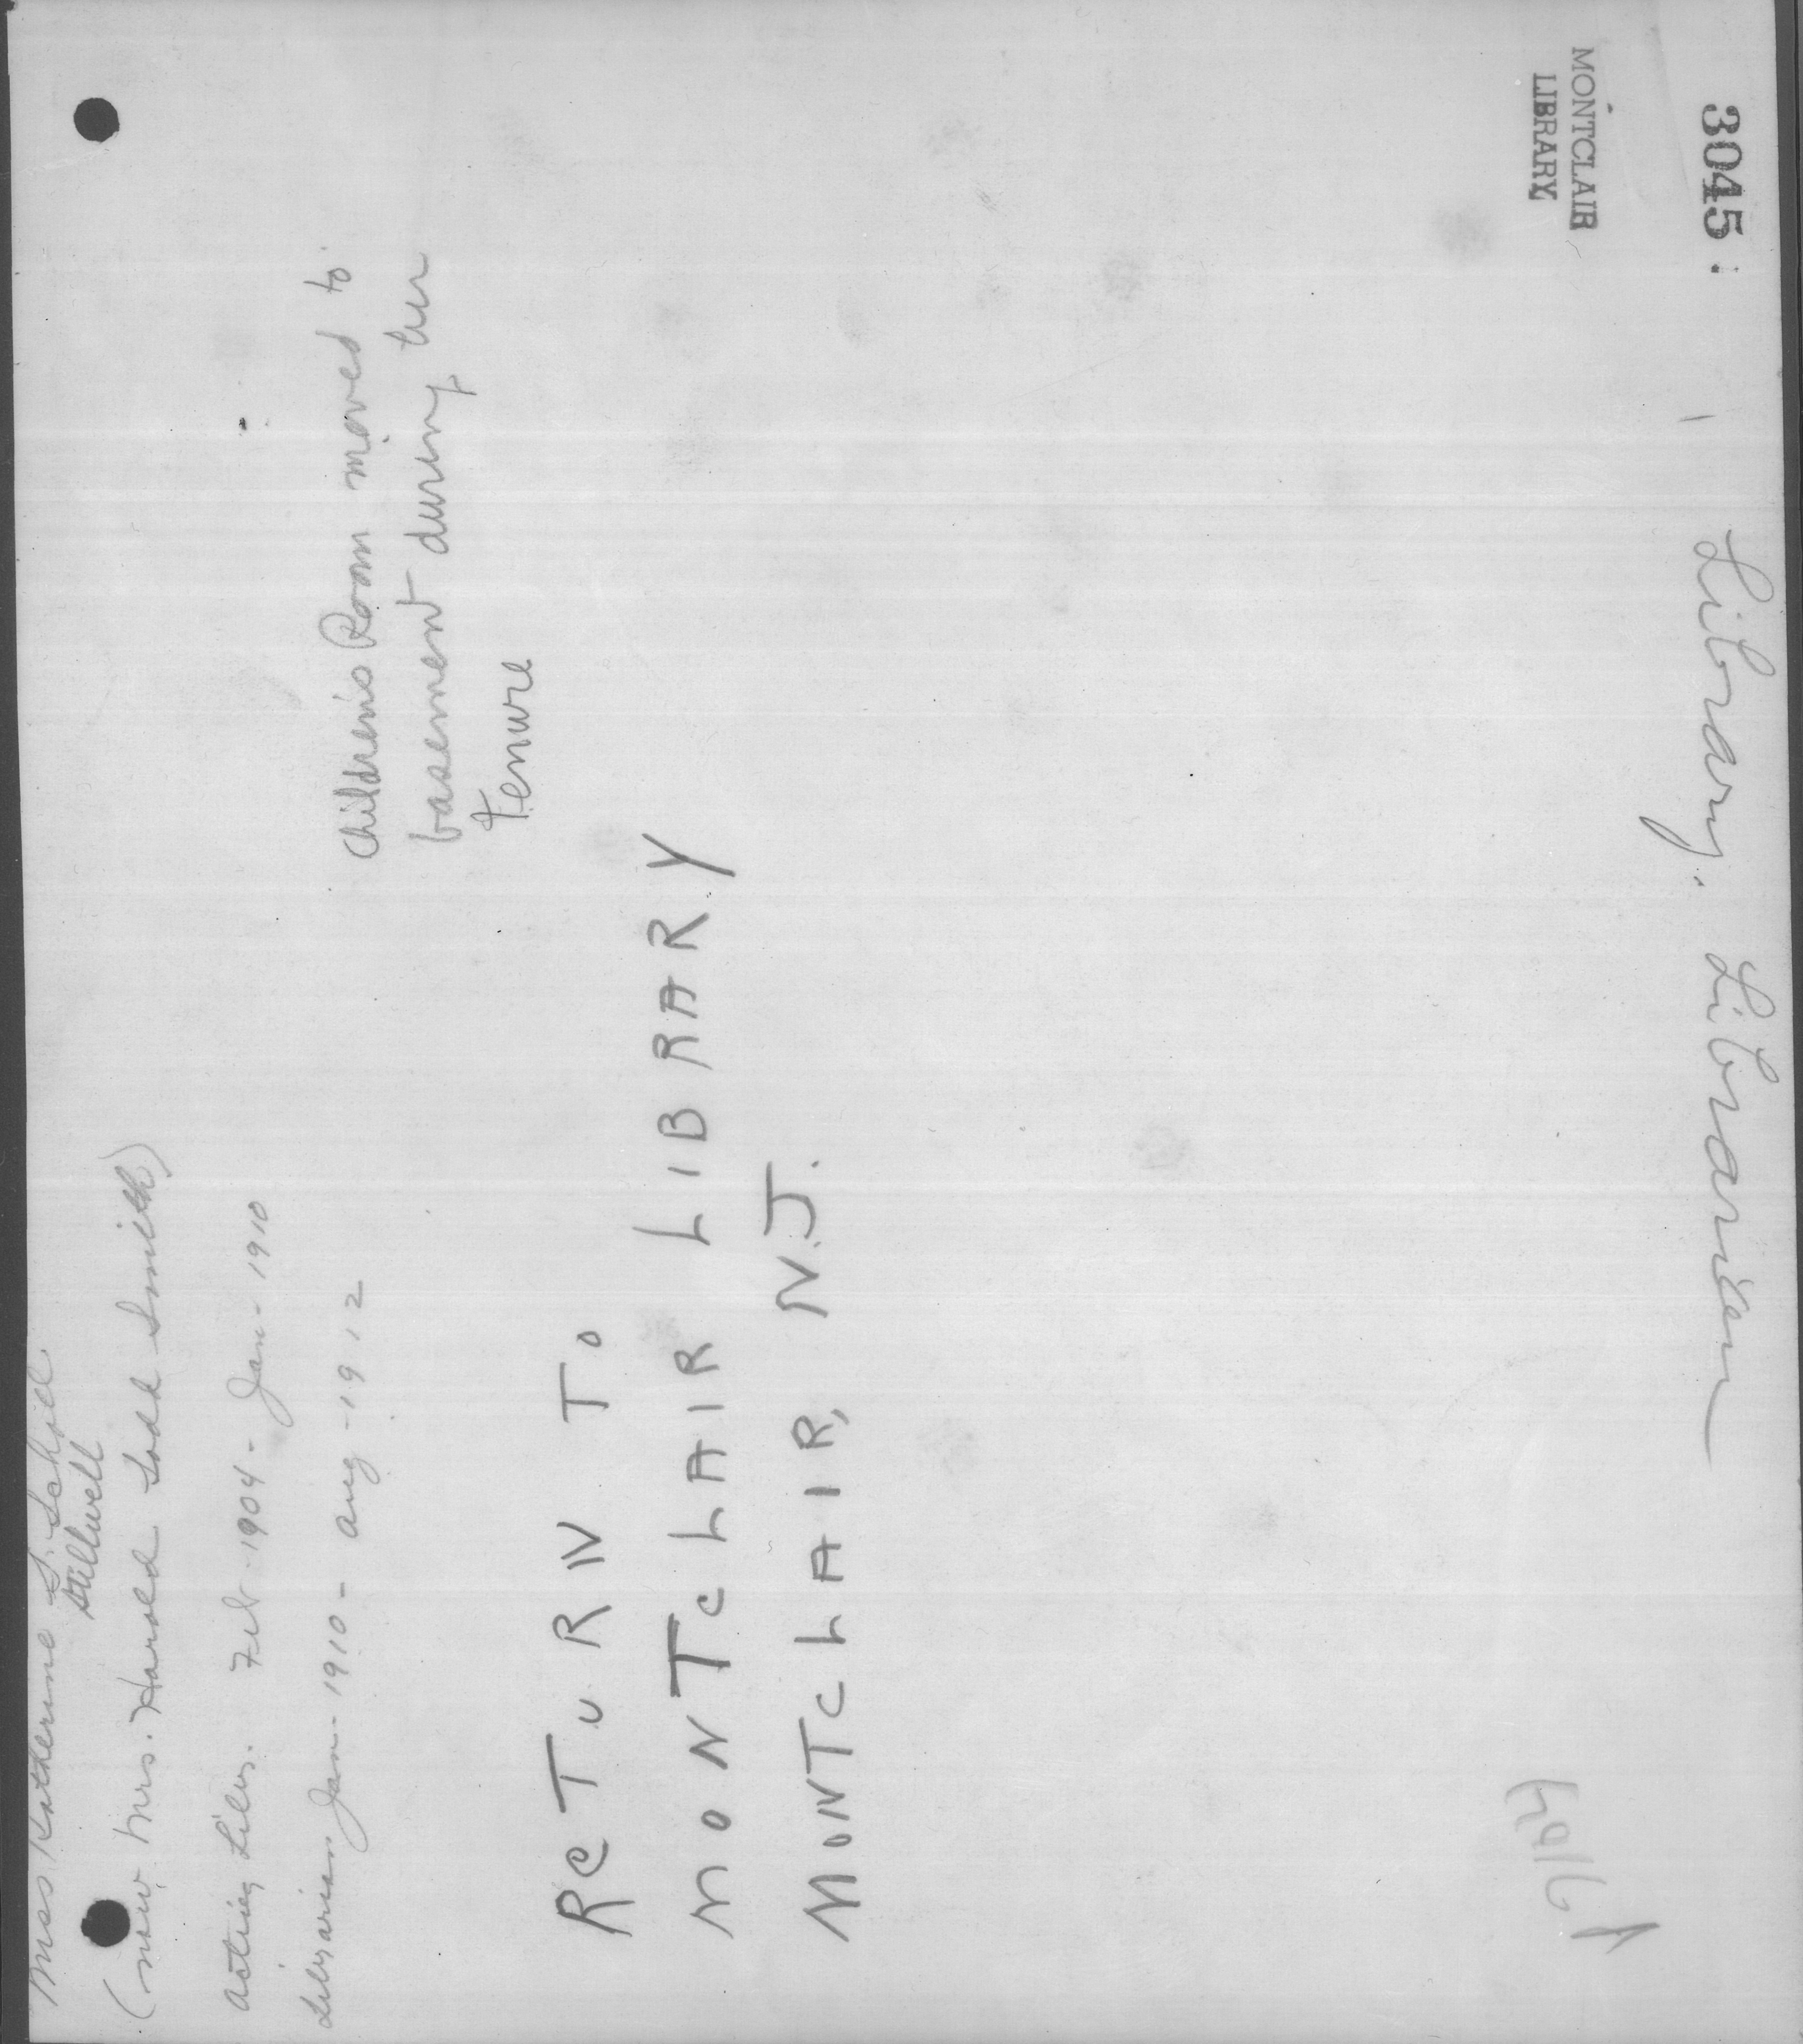 Miss Katherine S. Schoel
Stillwell
(now Mrs. Harold Ladd Smith)
Acting Libn. Feb-1904 - Jan-1910
Librarian Jan-1910 - Aug-1912
Children's Room moved to
basement during her
tenure
ReTuRN To
MONTCLAIR LIBRARY
MONTCLAIR, N.J.
3045
MONTCLAIR
LIBRARY
Library. Librarian